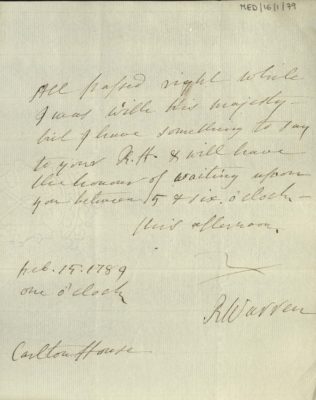 MED/16/1/79
All passed right while
I was with his majesty—
but I have something to say
to your R.H. & will have
the honour of waiting upon
you between 5 & six o'clock—
this afternoon.
Feb. 15. 1789
one o'clock
RWarren
Carlton House